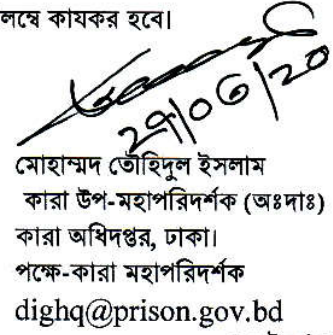 লম্বে কাযকর হবে।
২৯/০৬/২০
মোহাম্মদ তৌহিদুল ইসলাম
কারা উপ-মহাপরিদর্শক (অঃদাঃ)
কারা অধিদপ্তর, ঢাকা।
পক্ষে-কারা মহাপরিদর্শক
dighq@prison.gov.bd